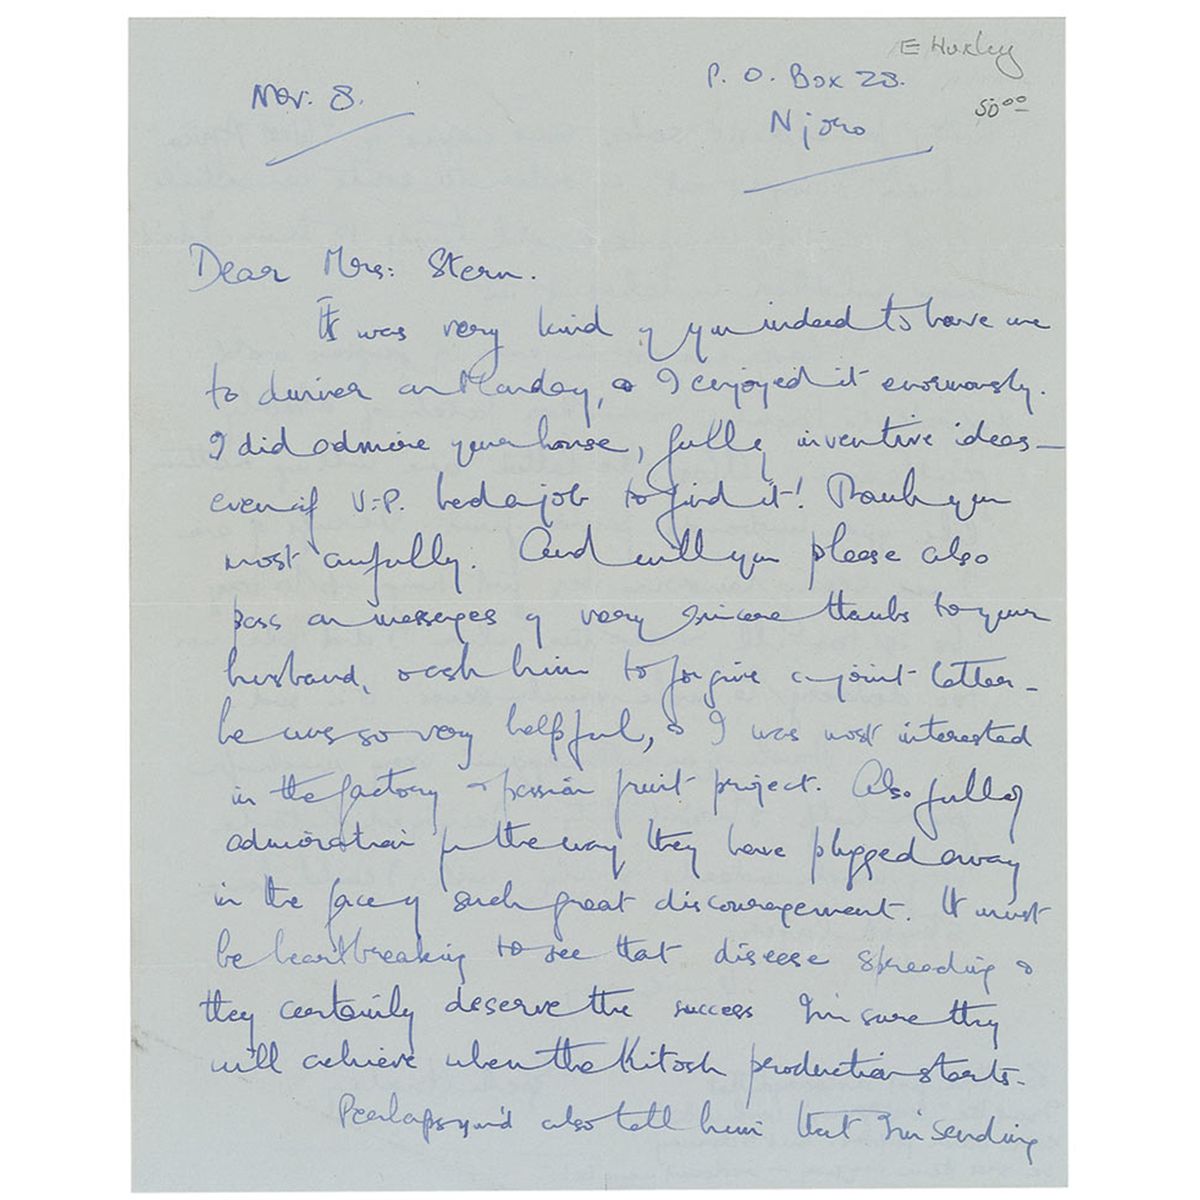 E Huxley
Nov. 8.
P. O. Box 28.
5000
Njoro
Dear Mrs: Stern.
It was very kind of you indeed to have me
to dinner on Monday, & I enjoyed it enormously.
I did admire your house, full of inventive ideas —
even if V-P. had a job to find it! Thank you
most awfully. And will you please also
pass on messages of very sincere thanks to your
husband, & ask him to forgive a joint letter -
he was so very helpful, & I was most interested
in the factory & passion fruit project. Also full of
admiration for the way they have plugged away
in the face of such great discouragement. It must
be heartbreaking to see that disease spreading &
they certainly deserve the success I'm sure they
will achieve when the Kitosh production starts.
Perhaps you'd also tell him that I'm sending